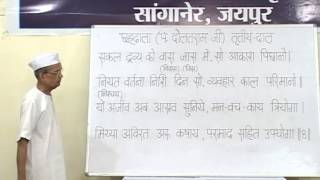 सांगानेर, जयपुर
छहढाला (पं. दौलतराम जी) तृतीय ढाल
सकल द्रव्य को वास जास में, सो आकाश पिछानो।
नियत वर्तना निशि दिन सो, व्यवहार काल परिमानो।
यों अजीव अब आस्रव सुनिये, मन-वच-काय त्रियोगा।
मिथ्या अविरत अरु कषाय, परमाद सहित उपयोगा॥8॥